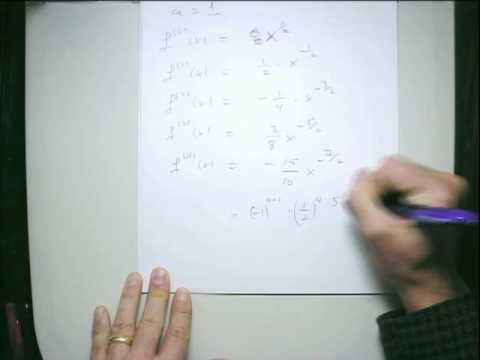 a = 1
f⁽⁰⁾(x) = x^{1/2}
f⁽¹⁾(x) = 1/2 · x^{-1/2}
f⁽²⁾(x) = - 1/4 · x^{-3/2}
f⁽³⁾(x) = 3/8 x^{-5/2}
f⁽⁴⁾(x) = - 15/16 x^{-7/2}
= (-1)^{4+1} · (1/2)^4 · 5